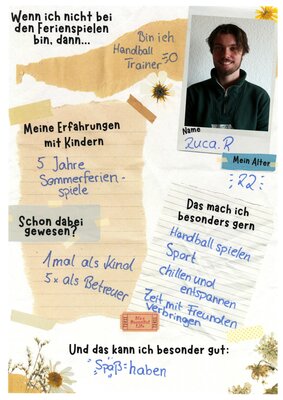 Wenn ich nicht bei
den Ferienspielen
bin, dann...
Bin ich
Handball
Trainer
Name
Luca.R
Mein Alter
22
Meine Erfahrungen
mit Kindern
5 Jahre
Sommerferien-
spiele
Schon dabei
gewesen?
1 mal als Kind
5x als Betreuer
Das mach ich
besonders gern
Handball spielen
Sport
chillen und
entspannen
Zeit mit Freunden
verbringen
Und das kann ich besonder gut:
Spaß haben